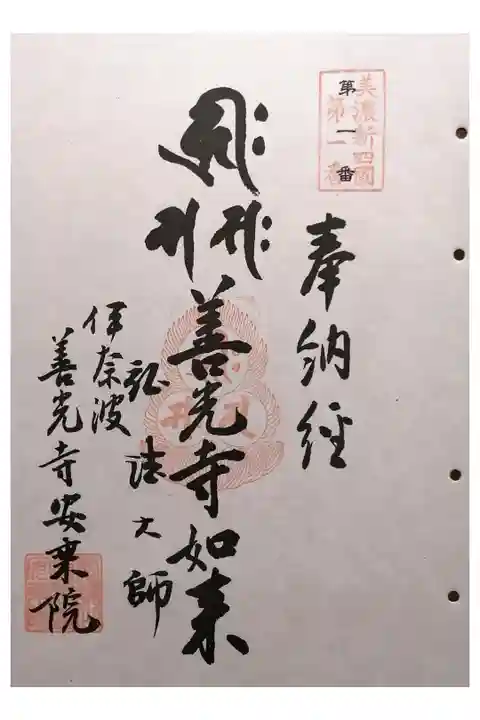 美濃新四國
第一番
第一番
奉納経
善光寺如来
弘法大師
伊奈波
善光寺安乗院